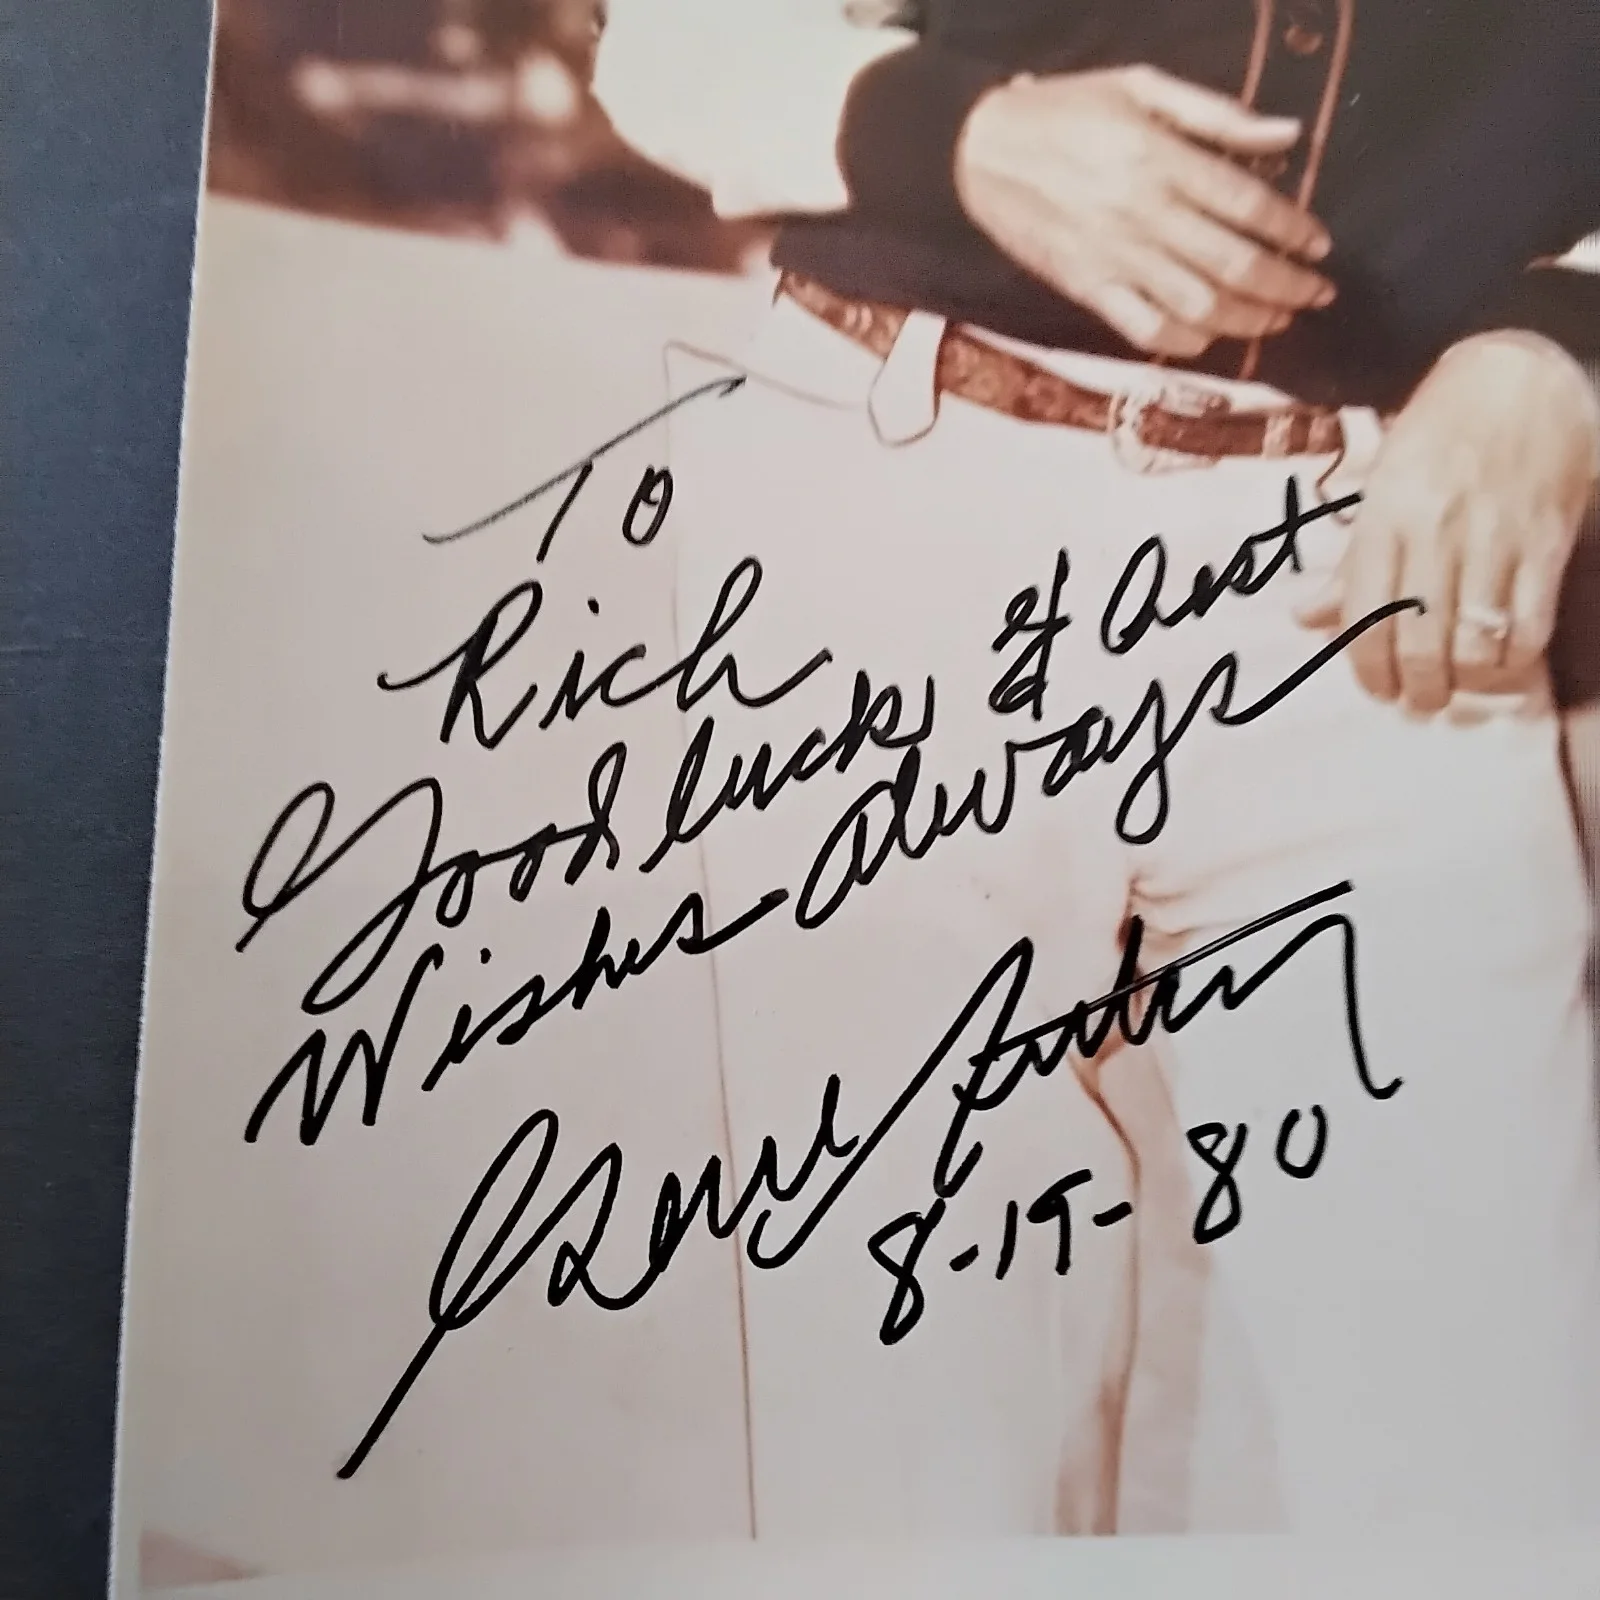 To
Rich
Good luck & Best
Wishes Always
Gene Autry
8-19-80